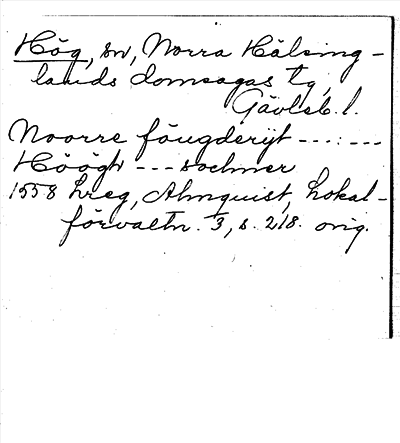 Hög, sn, Norra Hälsing-
lands domsagas tg,
Gävleb. l.
Noorre fōugderijt ---:---
Höögh --- sochner
1558 hreg, Almquist, Lokal-
förvaltn. 3, s. 218. orig.